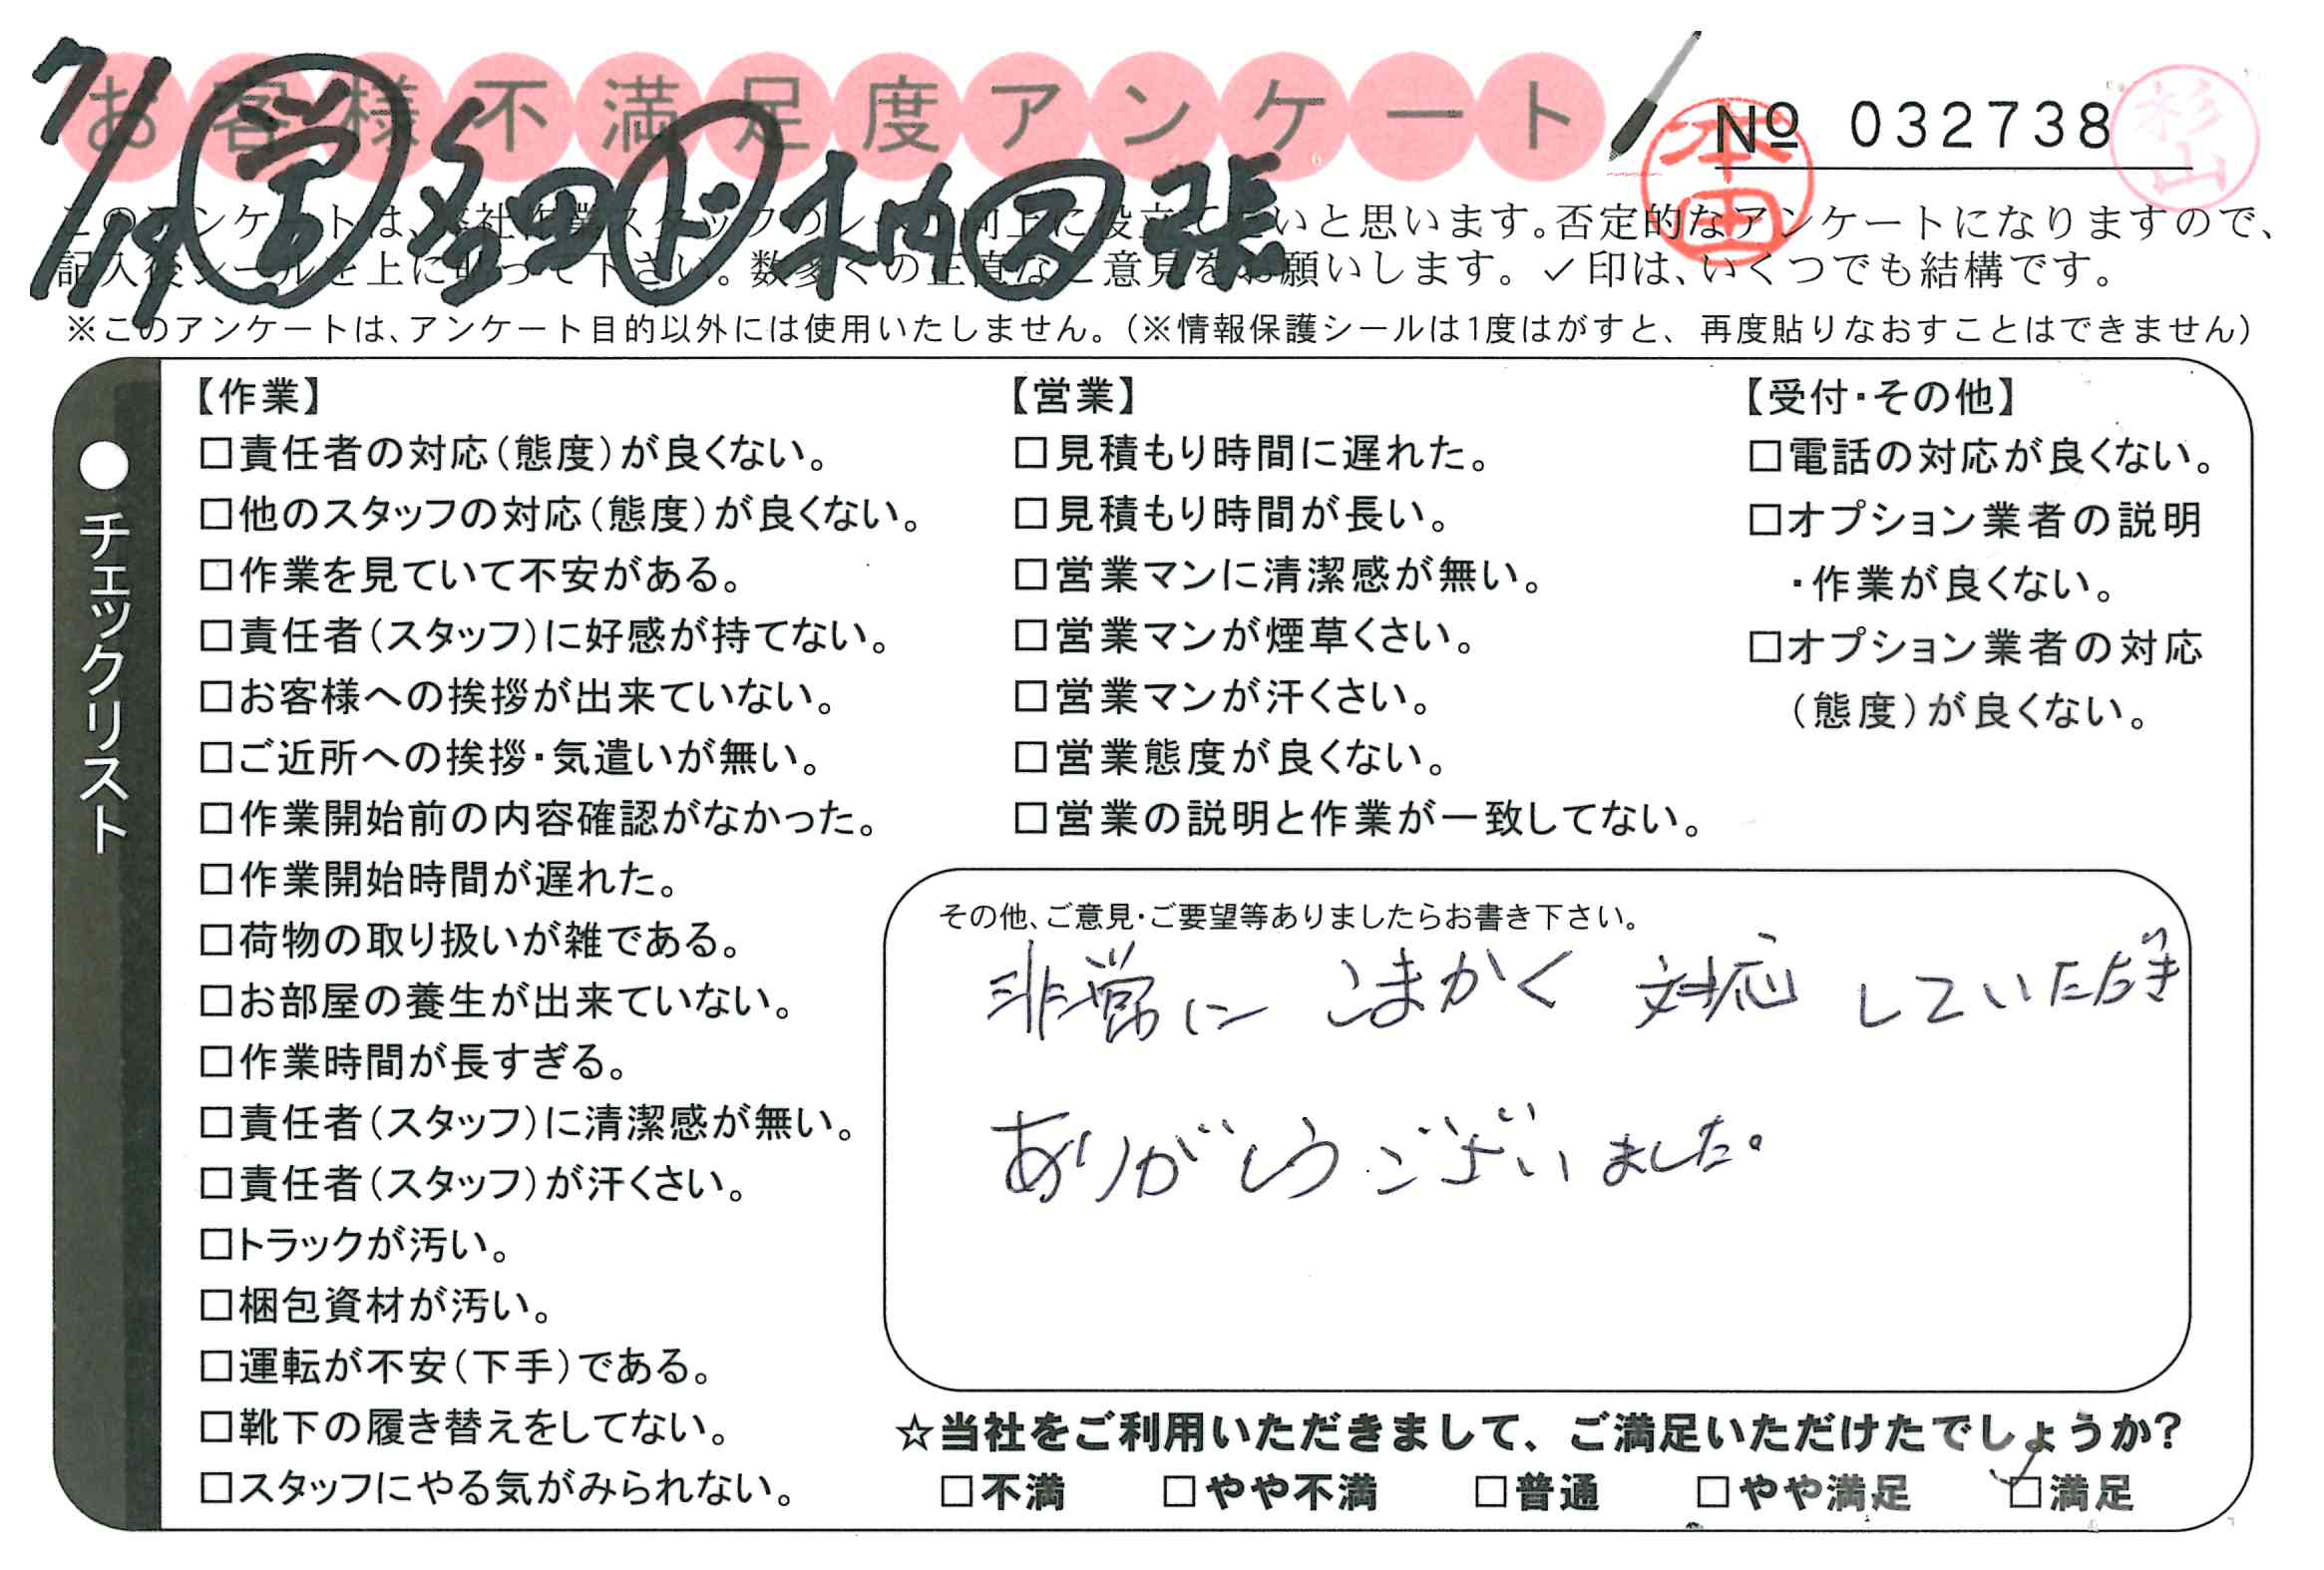 お客様不満足度アンケート
№ 032738
本田
杉山
7/19 営 名田 ド 木内 図 張
このアンケートは、当社作業スタッフのレベル向上に役立てたいと思います。否定的なアンケートになりますので、
記入後シールを上に貼って下さい。数多くの正直なご意見をお願いします。✓印は、いくつでも結構です。
※このアンケートは、アンケート目的以外には使用いたしません。（※情報保護シールは1度はがすと、再度貼りなおすことはできません）
●チェックリスト
【作業】
□責任者の対応（態度）が良くない。
□他のスタッフの対応（態度）が良くない。
□作業を見ていて不安がある。
□責任者（スタッフ）に好感が持てない。
□お客様への挨拶が出来ていない。
□ご近所への挨拶・気遣いが無い。
□作業開始前の内容確認がなかった。
□作業開始時間が遅れた。
□荷物の取り扱いが雑である。
□お部屋の養生が出来ていない。
□作業時間が長すぎる。
□責任者（スタッフ）に清潔感が無い。
□責任者（スタッフ）が汗くさい。
□トラックが汚い。
□梱包資材が汚い。
□運転が不安（下手）である。
□靴下の履き替えをしてない。
□スタッフにやる気がみられない。
【営業】
□見積もり時間に遅れた。
□見積もり時間が長い。
□営業マンに清潔感が無い。
□営業マンが煙草くさい。
□営業マンが汗くさい。
□営業態度が良くない。
□営業の説明と作業が一致してない。
【受付・その他】
□電話の対応が良くない。
□オプション業者の説明
・作業が良くない。
□オプション業者の対応
（態度）が良くない。
その他、ご意見・ご要望等ありましたらお書き下さい。
非常に こまかく 対応 していただき
ありがとう ございました。
☆当社をご利用いただきまして、ご満足いただけたでしょうか？
□不満 □やや不満 □普通 □やや満足 ☑満足